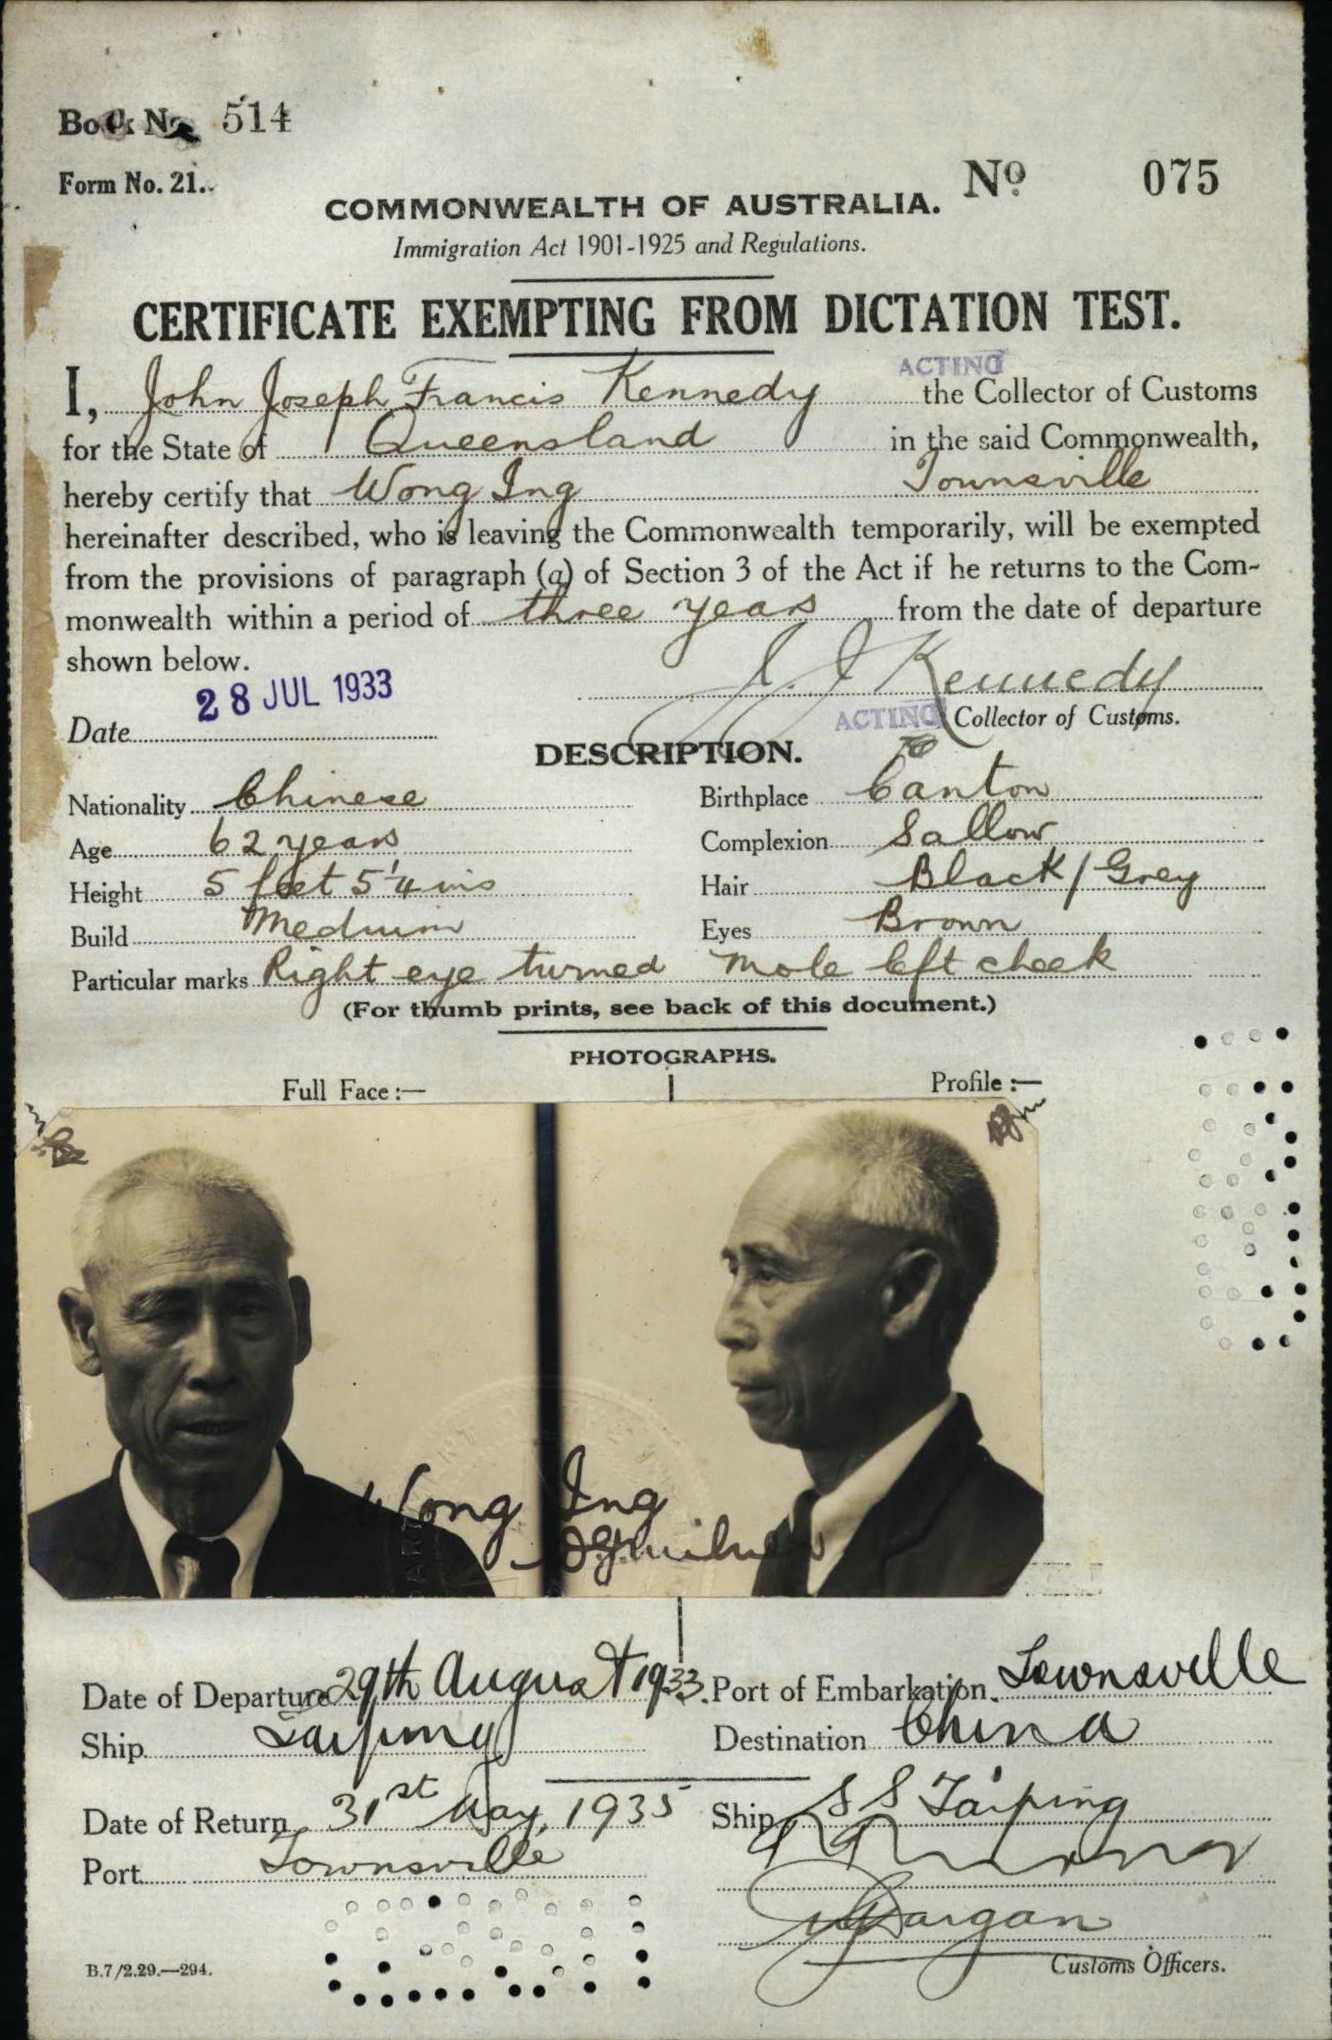 Book No. 514
Form No. 21.
No 075
COMMONWEALTH OF AUSTRALIA.
Immigration Act 1901-1925 and Regulations.
CERTIFICATE EXEMPTING FROM DICTATION TEST.
I, John Joseph Francis Kennedy ACTING the Collector of Customs
for the State of Queensland in the said Commonwealth,
hereby certify that Wong Ing Townsville
hereinafter described, who is leaving the Commonwealth temporarily, will be exempted
from the provisions of paragraph (a) of Section 3 of the Act if he returns to the Com-
monwealth within a period of three years from the date of departure
shown below.
J. J Kennedy
Date 28 JUL 1933
ACTING Collector of Customs.
DESCRIPTION.
Nationality Chinese Birthplace Canton
Age 62 years Complexion Sallow
Height 5 feet 5 1/4 ins Hair Black/Grey
Build Medium Eyes Brown
Particular marks Right eye turned Mole left cheek
(For thumb prints, see back of this document.)
PHOTOGRAPHS.
Full Face :— Profile :—
Wong Ing
Date of Departure 29th August 1933. Port of Embarkation Townsville
Ship Taiping Destination China
Date of Return 31st May, 1935 Ship S S Taiping
Port Townsville
B.7/2.29.—294.
Customs Officers.